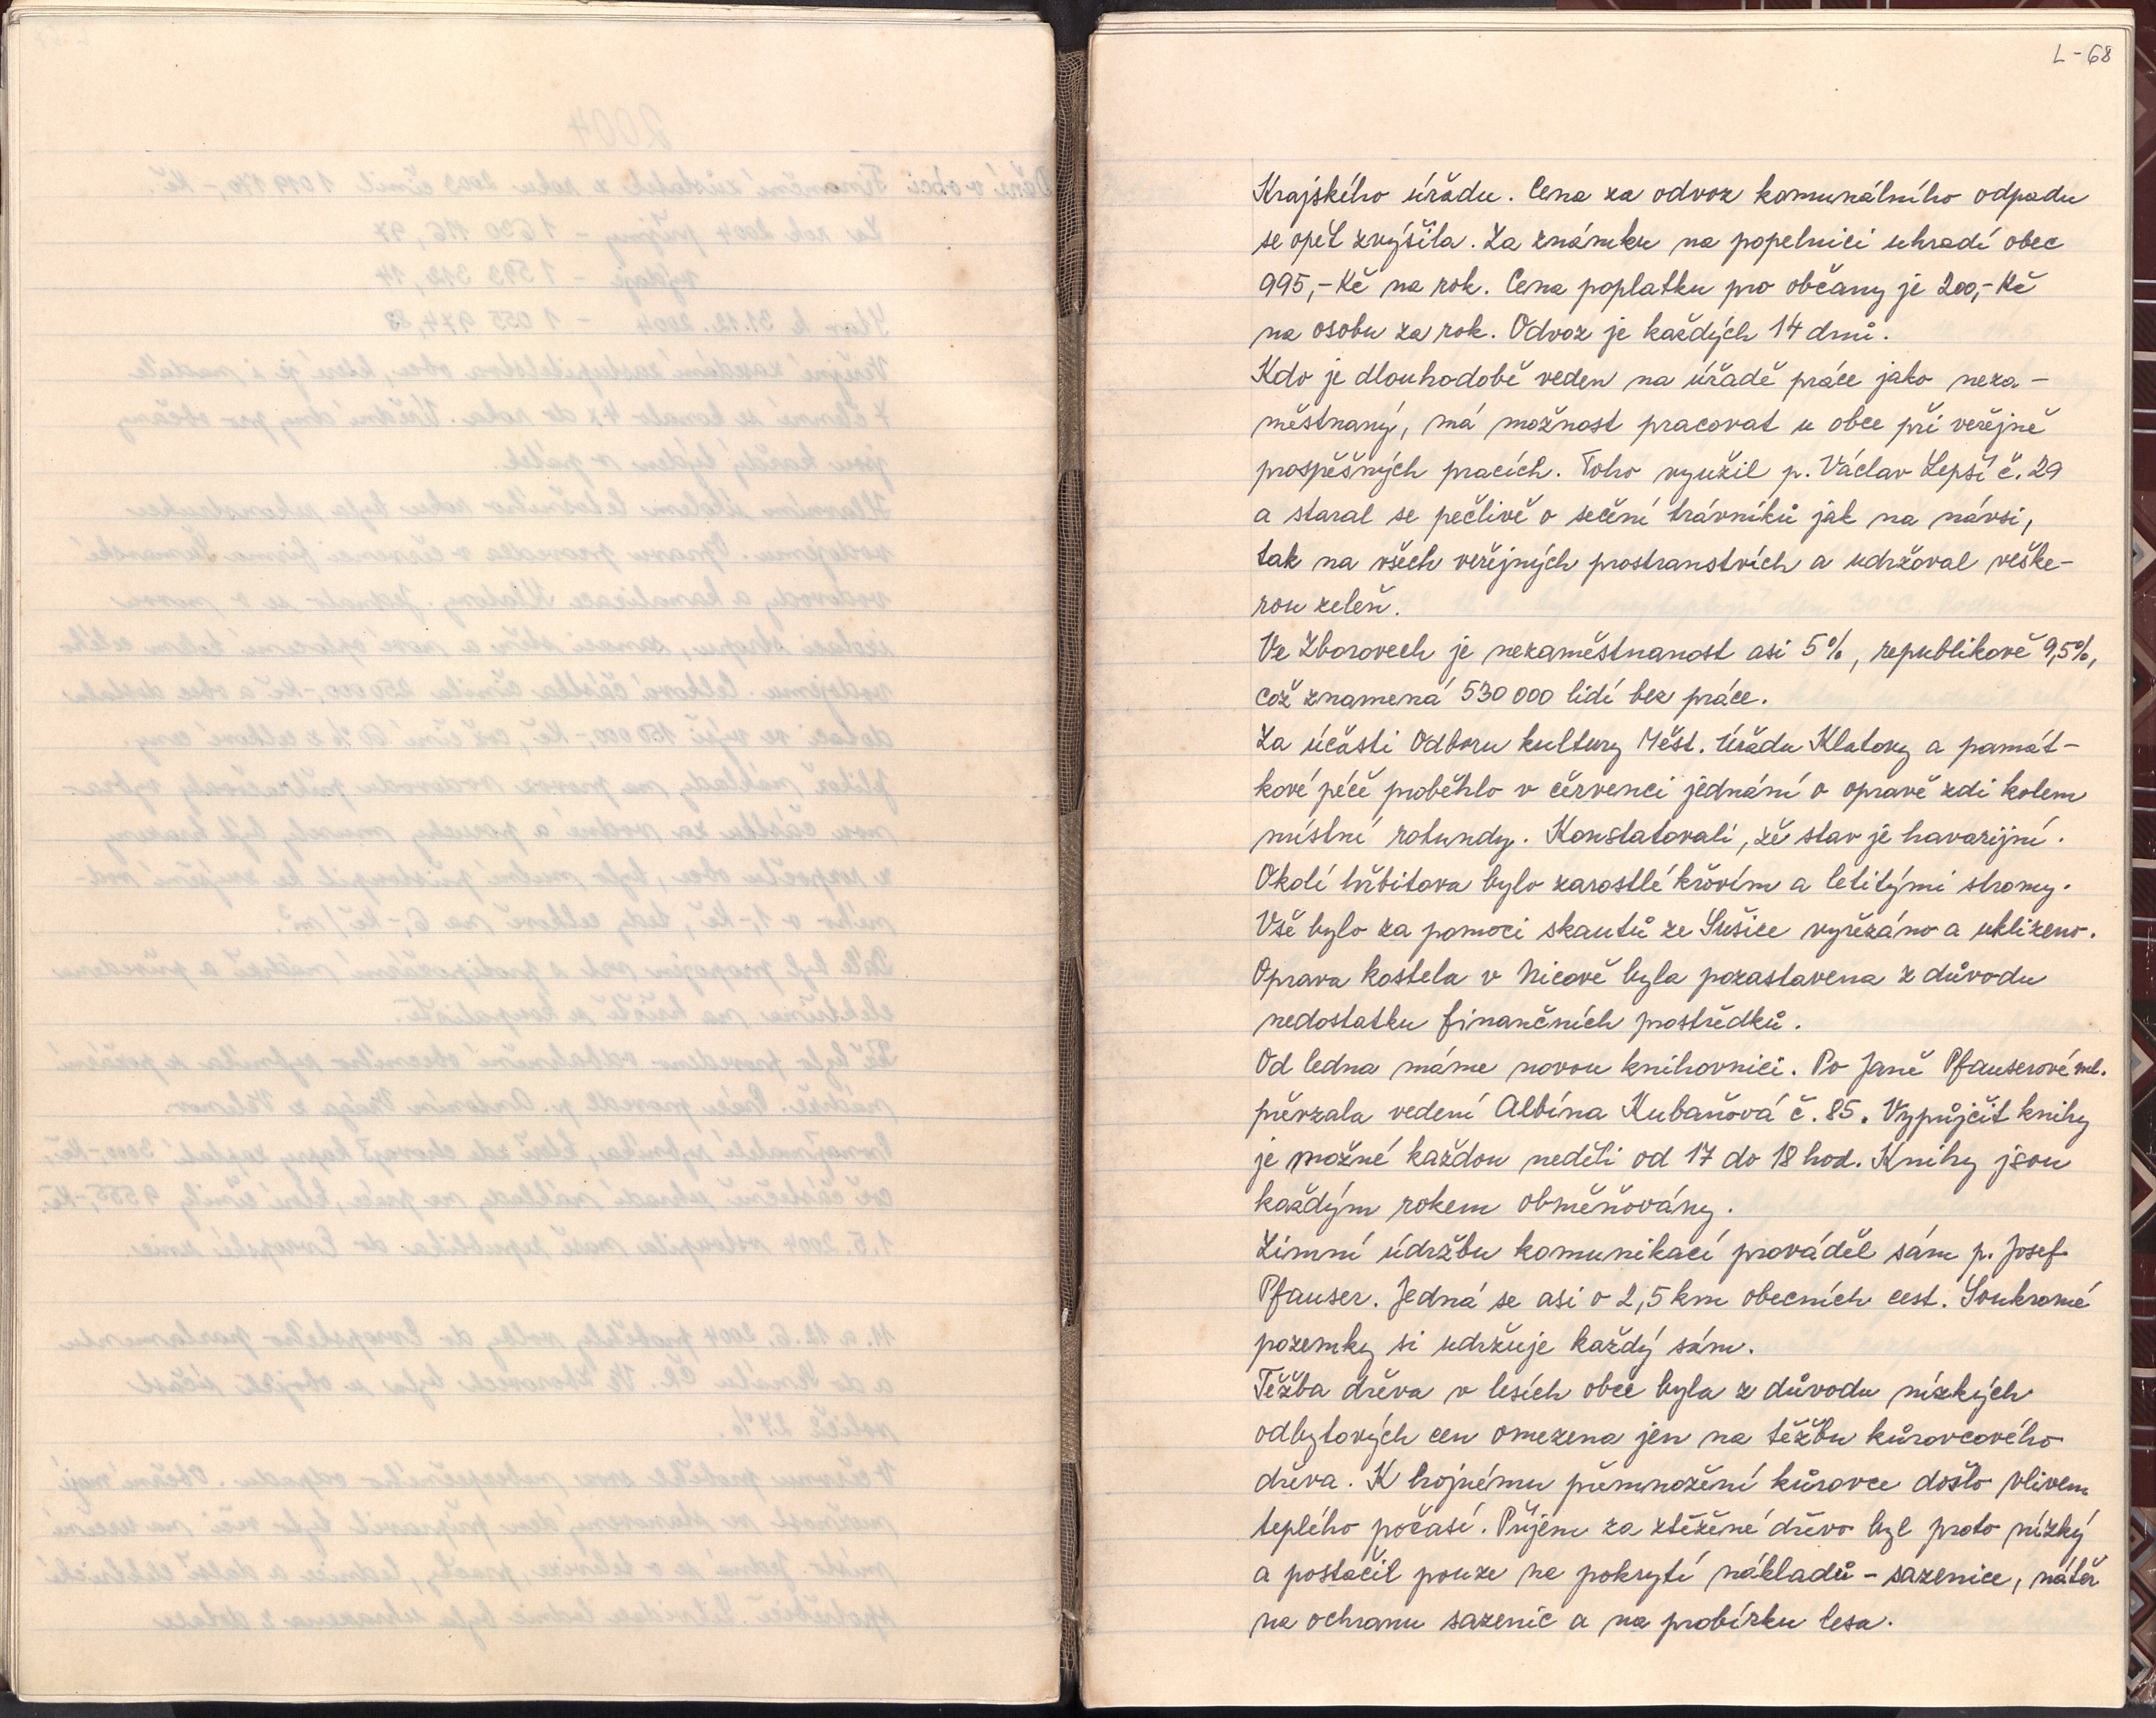 L-68
Krajského úřadu. Cena za odvoz komunálního odpadu
se opět zvýšila. Za známku na popelnici uhradí obec
995,- Kč na rok. Cena poplatku pro občany je 200,- Kč
na osobu za rok. Odvoz je každých 14 dnů.
Kdo je dlouhodobě veden na úřadě práce jako neza-
městnaný, má možnost pracovat u obce při veřejně
prospěšných pracích. Toho využil p. Václav Lepší č. 29
a staral se pečlivě o sečení trávníků jak na návsi,
tak na všech veřejných prostranstvích a udržoval veške-
rou zeleň.
Ve Zborovech je nezaměstnanost asi 5%, republikově 9,5%,
což znamená 530 000 lidí bez práce.
Za účasti Odboru kultury Měst. úřadu Klatovy a památ-
kové péče proběhlo v červenci jednání o opravě zdi kolem
místní rotundy. Konstatovali, že stav je havarijní.
Okolí hřbitova bylo zarostlé křovím a letitými stromy.
Vše bylo za pomoci skautů ze Sušice vyřezáno a uklizeno.
Oprava kostela v Nicově byla pozastavena z důvodu
nedostatku finančních prostředků.
Od ledna máme novou knihovnici. Po Janě Pfauserové ml.
převzala vedení Albína Kubaňová č. 85. Vypůjčit knihy
je možné každou neděli od 17 do 18 hod. Knihy jsou
každým rokem obměňovány.
Zimní údržbu komunikací prováděl sám p. Josef
Pfauser. Jedná se asi o 2,5 km obecních cest. Soukromé
pozemky si udržuje každý sám.
Těžba dřeva v lesích obce byla z důvodu nízkých
odbytových cen omezena jen na těžbu kůrovcového
dřeva. K hojnému přemnožení kůrovce došlo vlivem
teplého počasí. Příjem za ztěžené dřevo byl proto nízký
a postačil pouze na pokrytí nákladů - sazenice, nátěr
na ochranu sazenic a na probírku lesa.